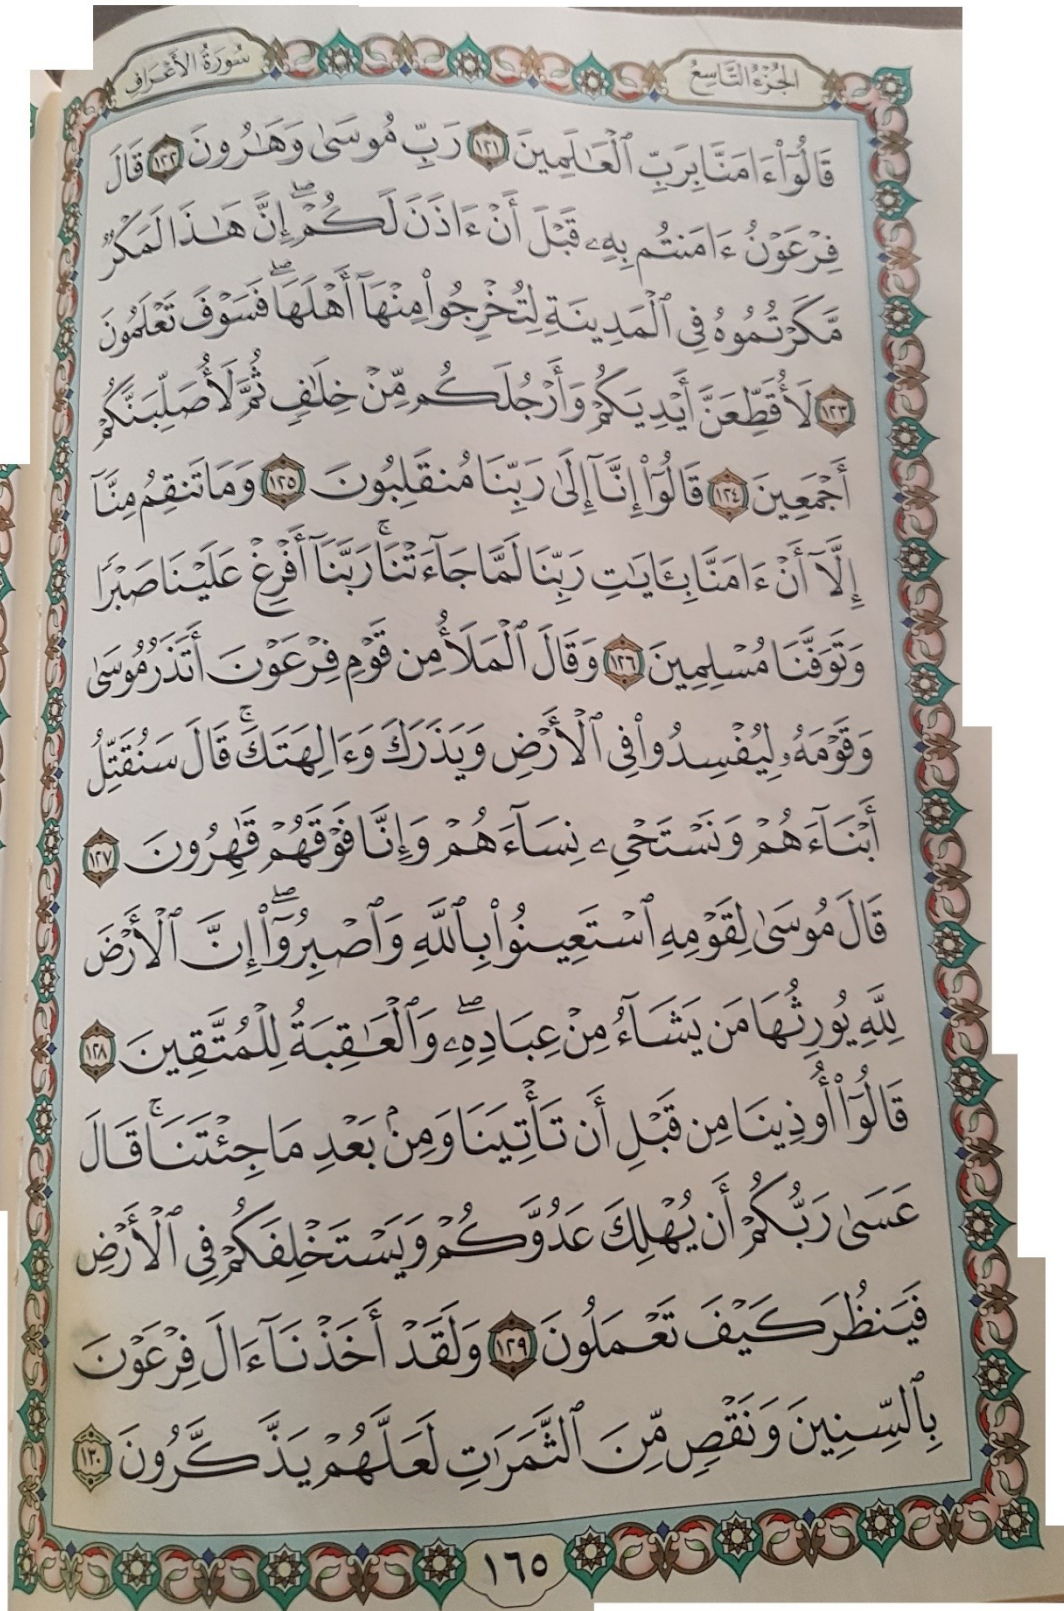 سُورَةُ الأَعْرَافِ
الجُزْءُ التَّاسِعُ
قَالُوٓا۟ ءَامَنَّا بِرَبِّ ٱلْعَـٰلَمِينَ ١٢١ رَبِّ مُوسَىٰ وَهَـٰرُونَ ١٢٢ قَالَ
فِرْعَوْنُ ءَامَنتُم بِهِۦ قَبْلَ أَنْ ءَاذَنَ لَكُمْ ۖ إِنَّ هَـٰذَا لَمَكْرٌ
مَّكَرْتُمُوهُ فِى ٱلْمَدِينَةِ لِتُخْرِجُوا۟ مِنْهَآ أَهْلَهَا ۖ فَسَوْفَ تَعْلَمُونَ
١٢٣ لَأُقَطِّعَنَّ أَيْدِيَكُمْ وَأَرْجُلَكُم مِّنْ خِلَـٰفٍ ثُمَّ لَأُصَلِّبَنَّكُمْ
أَجْمَعِينَ ١٢٤ قَالُوٓا۟ إِنَّآ إِلَىٰ رَبِّنَا مُنقَلِبُونَ ١٢٥ وَمَا تَنقِمُ مِنَّآ
إِلَّآ أَنْ ءَامَنَّا بِـَٔايَـٰتِ رَبِّنَا لَمَّا جَآءَتْنَا ۚ رَبَّنَآ أَفْرِغْ عَلَيْنَا صَبْرًا
وَتَوَفَّنَا مُسْلِمِينَ ١٢٦ وَقَالَ ٱلْمَلَأُ مِن قَوْمِ فِرْعَوْنَ أَتَذَرُ مُوسَىٰ
وَقَوْمَهُۥ لِيُفْسِدُوا۟ فِى ٱلْأَرْضِ وَيَذَرَكَ وَءَالِهَتَكَ ۚ قَالَ سَنُقَتِّلُ
أَبْنَآءَهُمْ وَنَسْتَحْىِۦ نِسَآءَهُمْ وَإِنَّا فَوْقَهُمْ قَـٰهِرُونَ ١٢٧
قَالَ مُوسَىٰ لِقَوْمِهِ ٱسْتَعِينُوا۟ بِٱللَّهِ وَٱصْبِرُوٓا۟ ۖ إِنَّ ٱلْأَرْضَ
لِلَّهِ يُورِثُهَا مَن يَشَآءُ مِنْ عِبَادِهِۦ ۖ وَٱلْعَـٰقِبَةُ لِلْمُتَّقِينَ ١٢٨
قَالُوٓا۟ أُوذِينَا مِن قَبْلِ أَن تَأْتِيَنَا وَمِنۢ بَعْدِ مَا جِئْتَنَا ۚ قَالَ
عَسَىٰ رَبُّكُمْ أَن يُهْلِكَ عَدُوَّكُمْ وَيَسْتَخْلِفَكُمْ فِى ٱلْأَرْضِ
فَيَنظُرَ كَيْفَ تَعْمَلُونَ ١٢٩ وَلَقَدْ أَخَذْنَآ ءَالَ فِرْعَوْنَ
بِٱلسِّنِينَ وَنَقْصٍ مِّنَ ٱلثَّمَرَٰتِ لَعَلَّهُمْ يَذَّكَّرُونَ ١٣٠
١٦٥